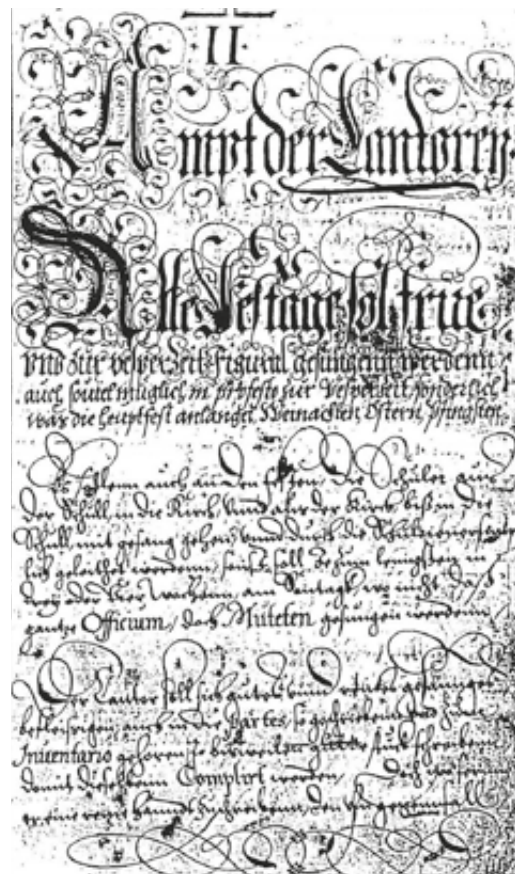 II.
Ampt der Cantoreÿ.
Alle Festage sol frue
vnd zur vesper Zeit figural gesungenn werdenn
auch souiel muglich in profesto zur Vesperzeit sonderlich
was die heuptfest anlanget Weinachten Ostern pfingsten.
Es sollenn auch an den festen, die Schuler aus
der Schull, in die Kirch, vnnd aus der Kirch, biß in die
Schull, mit gesang gehen, vnnd durch die Schuldiener
geleithet werdenn, sonst soll Zum lengsten in
drey oder vier wochenn, am Sontage, wo nicht, das
gantze Officium, doch Muteten gesungen werdenn
Der Cantor soll sich gutes vnnd gesanges
befleissigen, auch in die Partes, so geschrieben vnd zum
Inventario gehoren, so bisweilen gutte stuck schreibenn,
damit dieselbenn Complirt werden, Doch wo ferne
er eine handt Zuschreibenn, den